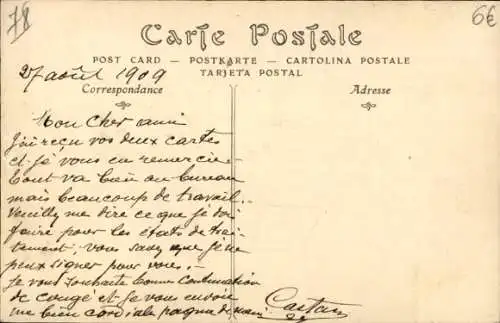 78
6€
Carte Postale
POST CARD — POSTKARTE — CARTOLINA POSTALE
TARJETA POSTAL
27 août 1909
Correspondance
Adresse
Mon cher ami
J'ai reçu vos deux cartes
et je vous en remercie -
tout va bien au bureau
mais beaucoup de travail. -
Veuillez me dire ce que je dois
faire pour les états de trai-
tement, vous savez que je ne
peux signer pour vous. -
Je vous souhaite bonne continuation
de congé et je vous envoie
une bien cordiale poignée de main
Gaëtan